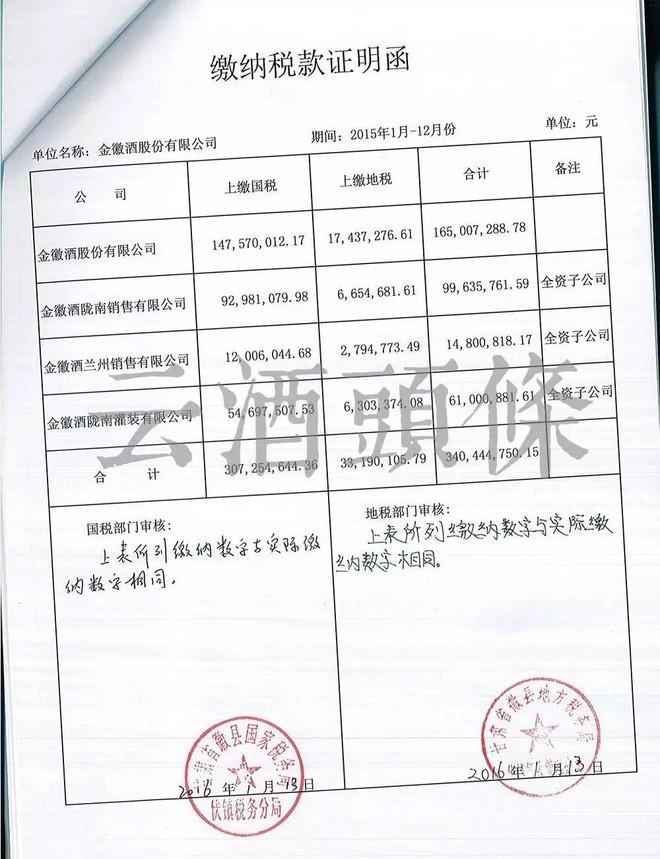 缴纳税款证明函
单位名称：金徽酒股份有限公司 期间：2015年1月-12月份 单位：元
公 司 上缴国税 上缴地税 合计 备注
金徽酒股份有限公司 147,570,012.17 17,437,276.61 165,007,288.78
金徽酒陇南销售有限公司 92,981,079.98 6,654,681.61 99,635,761.59 全资子公司
金徽酒兰州销售有限公司 12,006,044.68 2,794,773.49 14,800,818.17 全资子公司
金徽酒陇南灌装有限公司 54,697,507.53 6,303,374.08 61,000,881.61 全资子公司
合 计 307,254,644.36 33,190,105.79 340,444,750.15
云酒頭條
国税部门审核：
上表所列缴纳数字与实际缴
纳数字相同。
地税部门审核：
上表所列缴纳数字与实际缴
纳数字相同。
甘肃省徽县国家税务局
伏镇税务分局
2016年1月13日
甘肃省徽县地方税务局
2016年1月13日